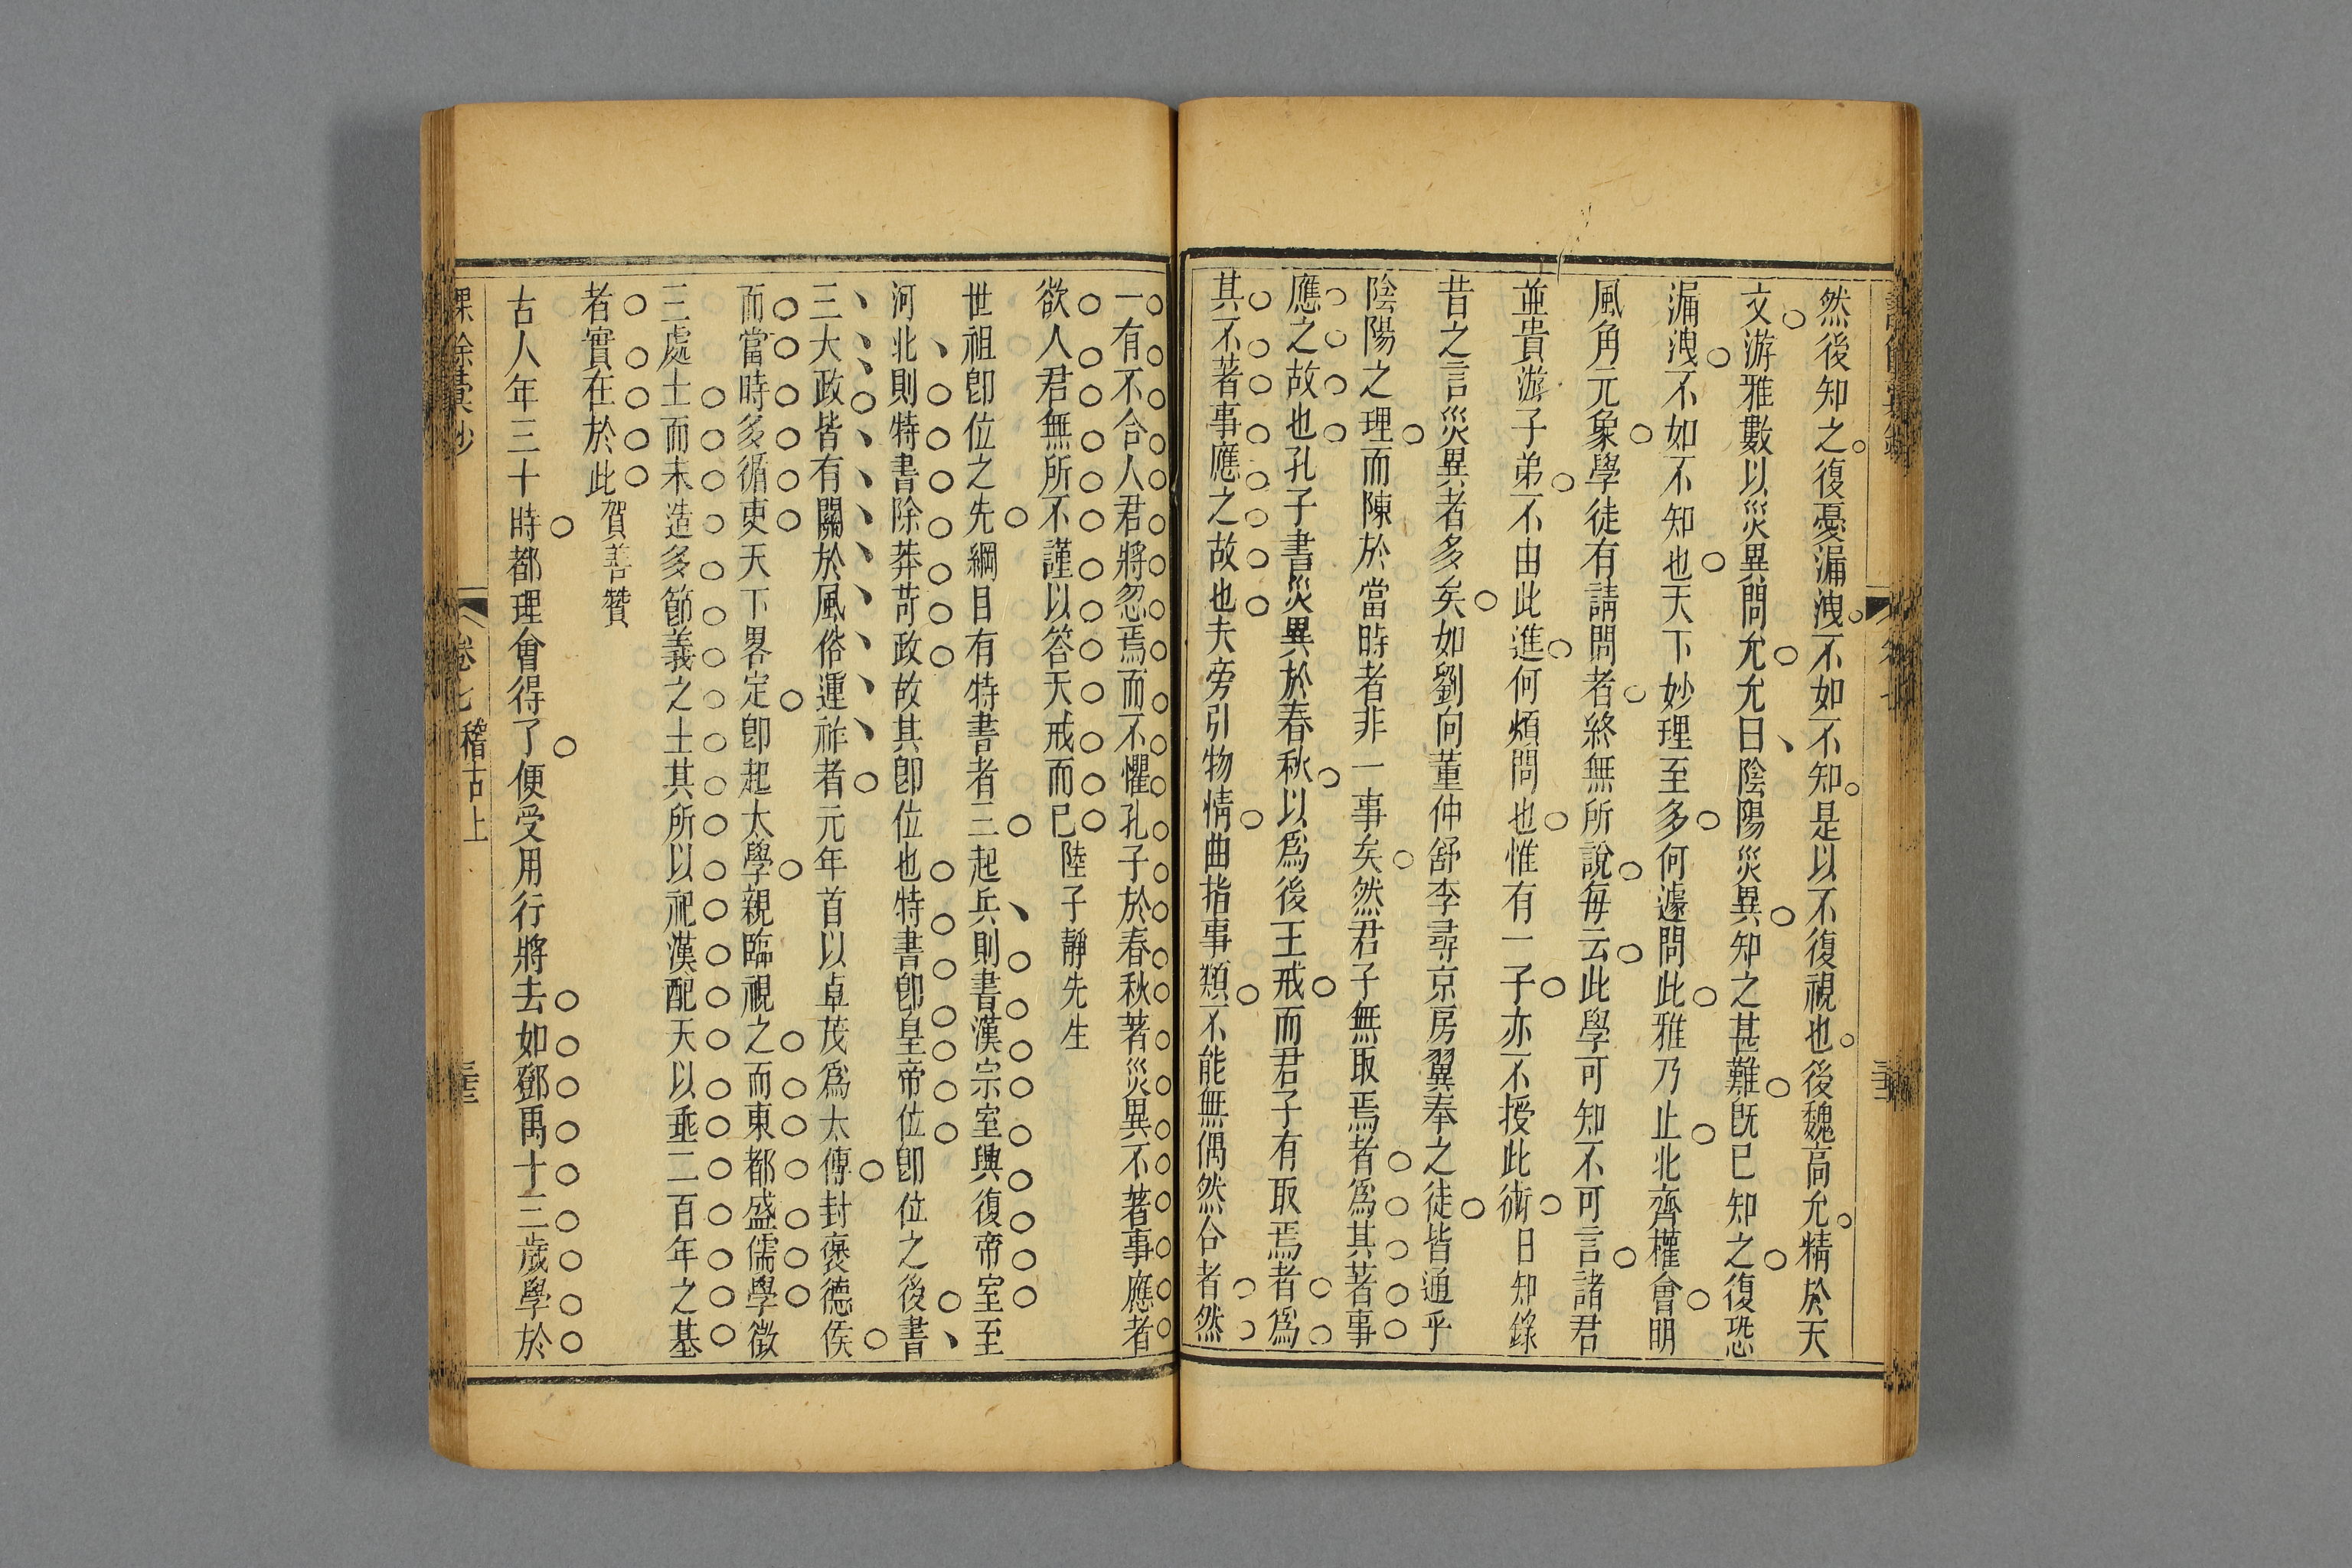 然後知之復憂漏洩不如不知是以不復視也後魏高允精於天
文游雅數以災異問允允曰陰陽災異知之甚難旣已知之復恐
漏洩不如不知也天下妙理至多何遽問此雅乃止北齊權會明
風角元象學徒有請問者終無所說每云此學可知不可言諸君
並貴游子弟不由此進何煩問也惟有一子亦不授此術日知錄
昔之言災異者多矣如劉向董仲舒李尋京房翼奉之徒皆通乎
陰陽之理而陳於當時者非一事矣然君子無取焉者為其著事
應之故也孔子書災異於春秋以為後王戒而君子有取焉者為
其不著事應之故也夫旁引物情曲指事類不能無偶然合者然
一有不合人君將忽焉而不懼孔子於春秋著災異不著事應者
欲人君無所不謹以答天戒而已陸子靜先生
世祖卽位之先綱目有特書者三起兵則書漢宗室興復帝室至
河北則特書除莽苛政故其卽位也特書卽皇帝位卽位之後書
三大政皆有關於風俗運祚者元年首以卓茂為太傅封褒德侯
而當時多循吏天下畧定卽起太學親臨視之而東都盛儒學徵
三處士而未造多節義之士其所以祀漢配天以亟二百年之基
者實在於此賀善贊
古人年三十時都理會得了便受用行將去如鄧禹十三歲學於
卷七 稽古上